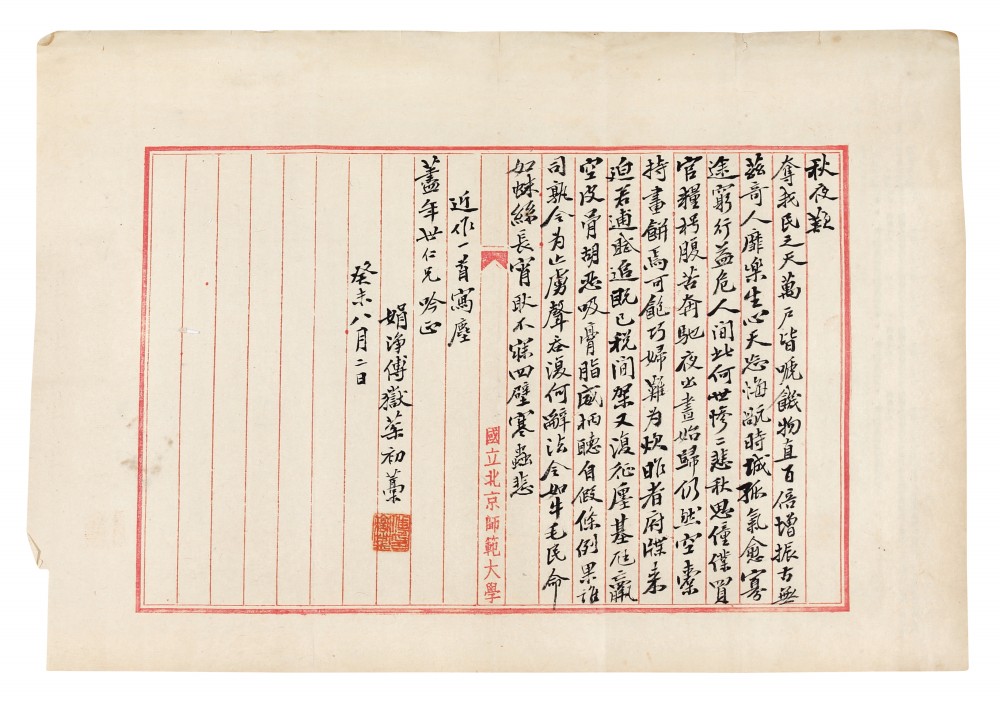 秋夜歎
奪我民之天萬戶皆嗁饑物直百倍增振古無
茲奇人靡樂生心天忍海瓾時城孤氣愈寡
途窮行益危人間此何世慘二悲秋思僮僕買
官糧枵腹苦奔馳夜出晝始歸仍然空橐
持畫餅焉可飽巧婦難為炊昨者府牒來
迫若逋賦追既已稅間架又復征廛基尫羸
空皮骨胡忍吸膏脂威柄聽自假條例果誰
司孰令為止虜聲吞復何辭法令如牛毛民命
如蛛絲長宵耿不寐四壁寒蟲悲
近作一首寫塵
藎年世仁兄吟正
娟淨傅嶽棻初藁
癸未八月二日
國立北京師範大學